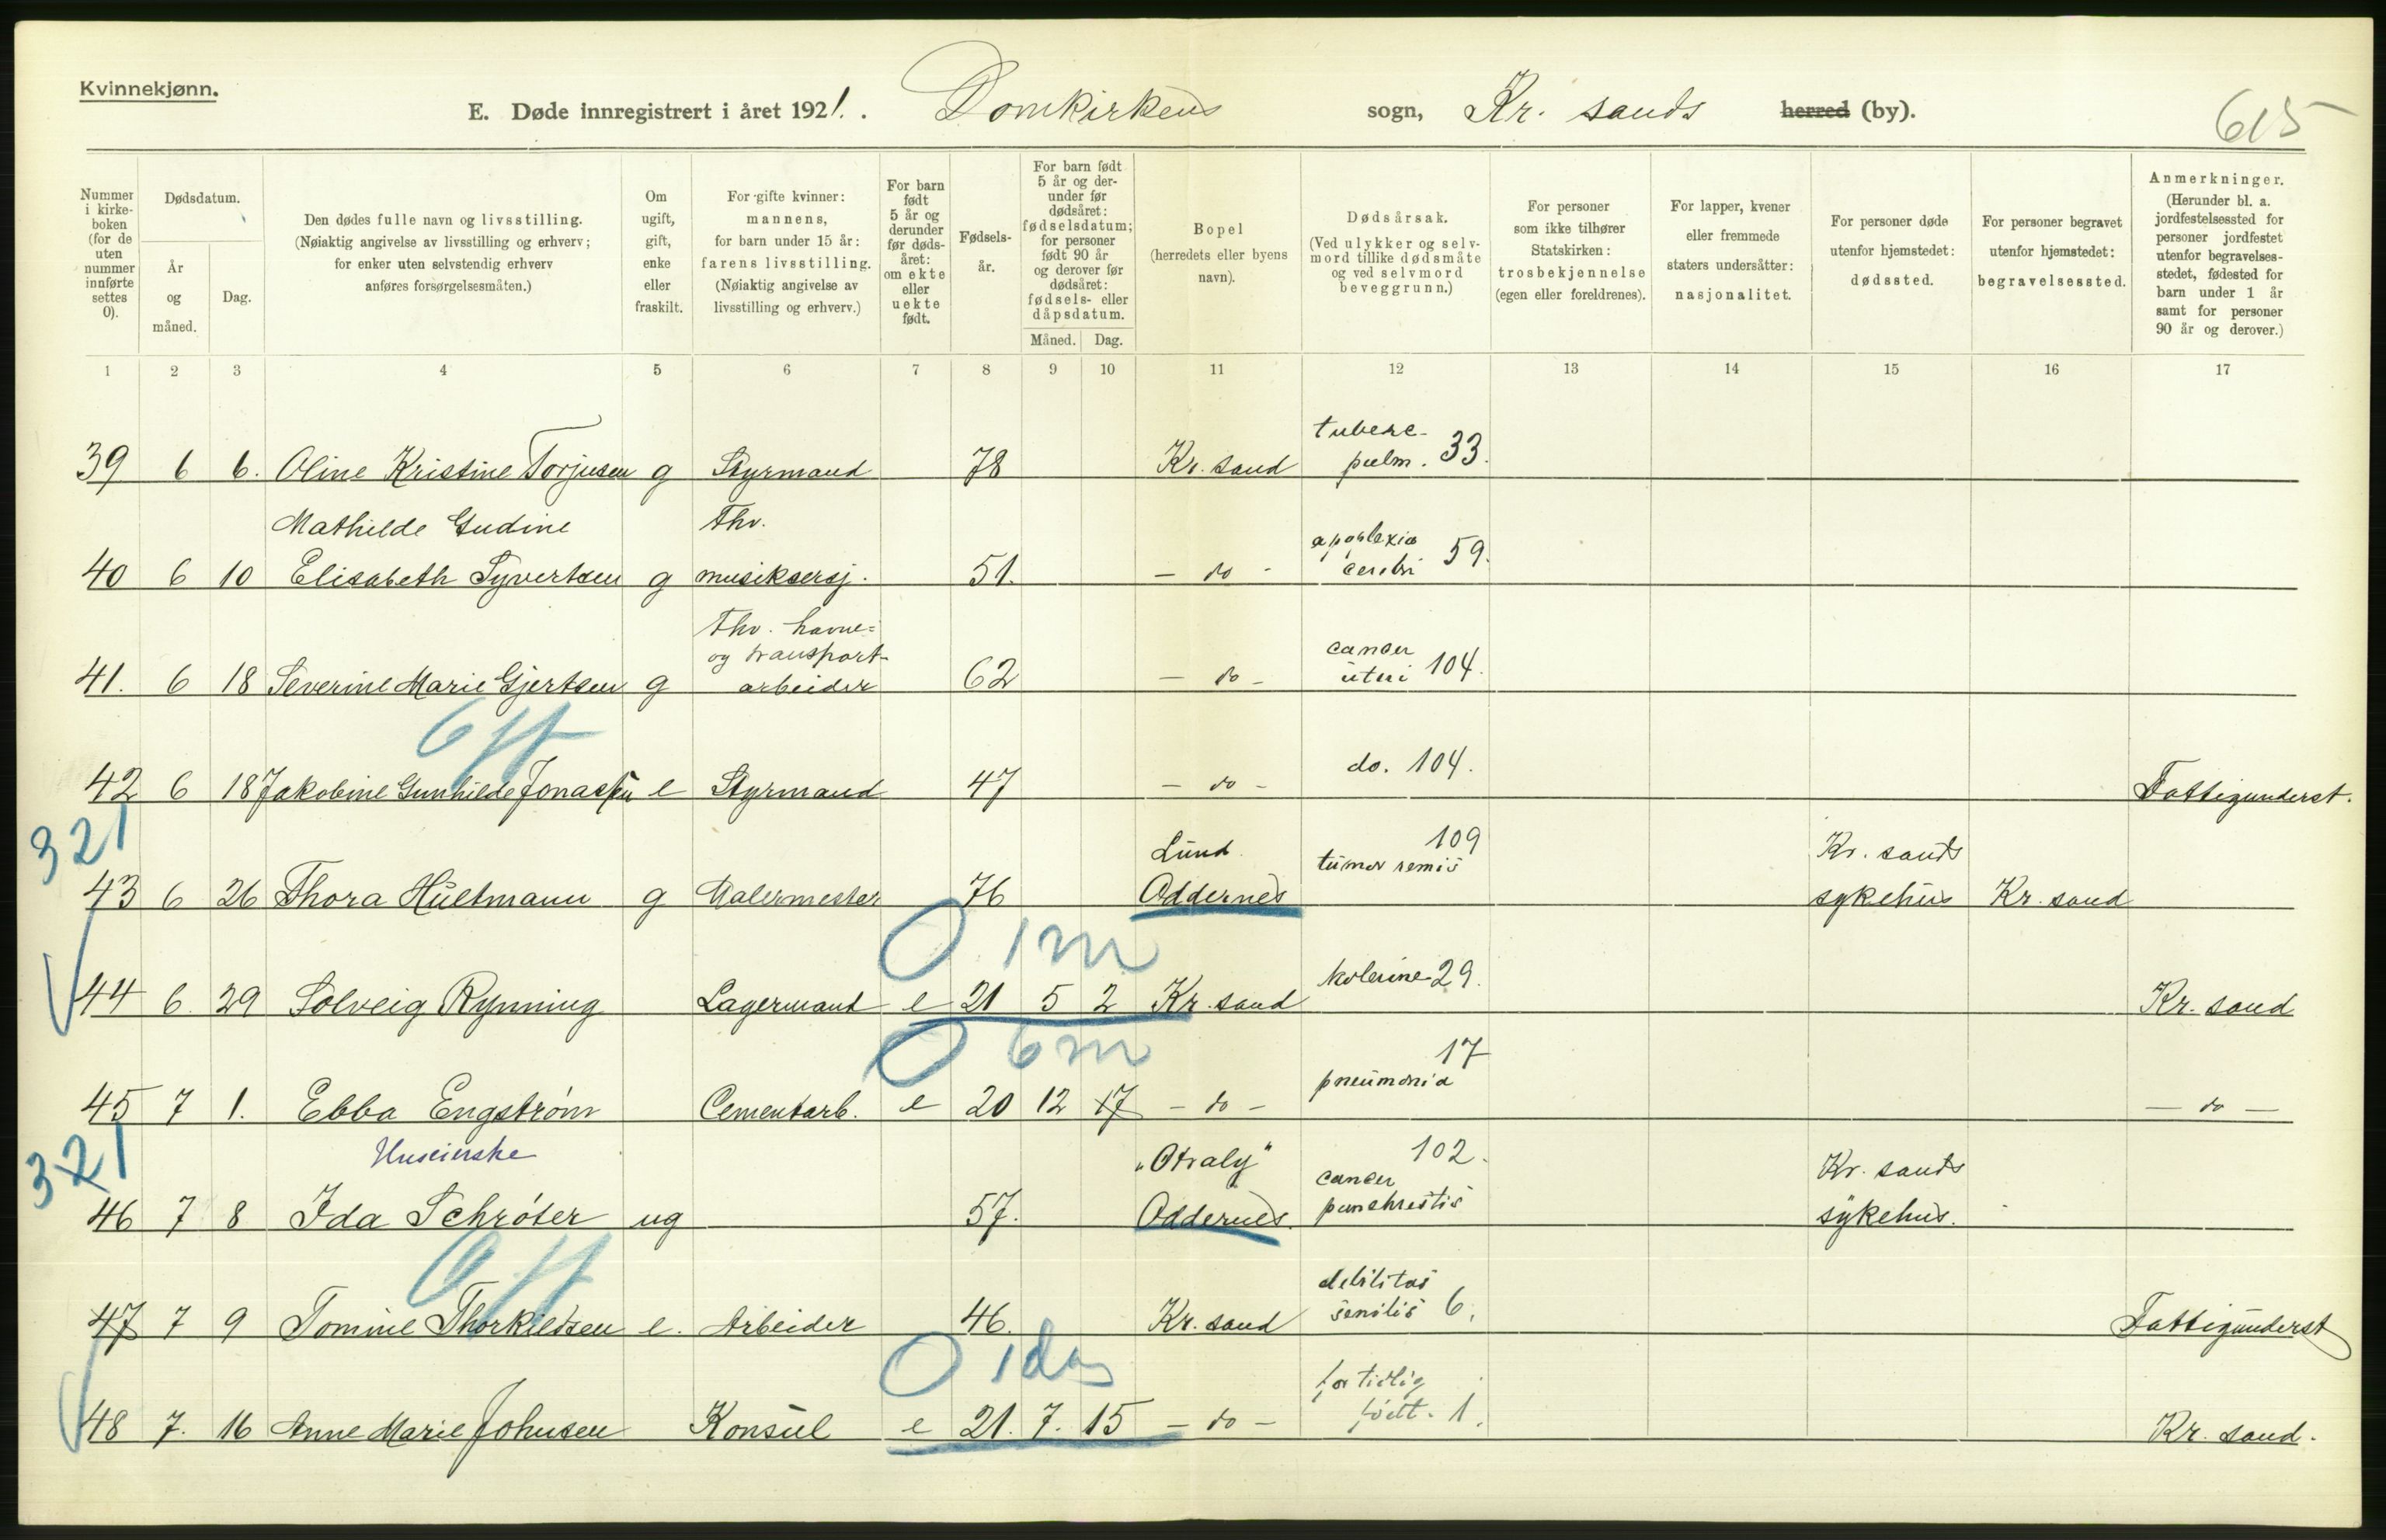 Kvinnekjønn.
E. Døde innregistrert i året 1921. Domkirkens sogn, Kr. sands herred (by).
615
Nummer i kirkeboken (for de uten nummer innførte settes 0).
Dødsdatum.
År og måned.
Dag.
Den dødes fulle navn og livsstilling. (Nøiaktig angivelse av livsstilling og erhverv; for enker uten selvstendig erhverv anføres forsørgelsesmåten.)
Om ugift, gift, enke eller fraskilt.
For gifte kvinner: mannens, for barn under 15 år: farens livsstilling. (Nøiaktig angivelse av livsstilling og erhverv.)
For barn født 5 år og derunder før dødsåret: om ekte eller uekte født.
Fødselsår.
For barn født 5 år og derunder før dødsåret: fødselsdatum; for personer født 90 år og derover før dødsåret: fødsels- eller dåpsdatum.
Måned. Dag.
Bopel (herredets eller byens navn).
Dødsårsak. (Ved ulykker og selvmord tillike dødsmåte og ved selvmord beveggrunn.)
For personer som ikke tilhører Statskirken: trosbekjennelse (egen eller foreldrenes).
For lapper, kvener eller fremmede staters undersåtter: nasjonalitet.
For personer døde utenfor hjemstedet: dødssted.
For personer begravet utenfor hjemstedet: begravelsessted.
Anmerkninger. (Herunder bl. a. jordfestelsessted for personer jordfestet utenfor begravelsesstedet, fødested for barn under 1 år samt for personer 90 år og derover.)
1 2 3 4 5 6 7 8 9 10 11 12 13 14 15 16 17
tuberc-
39 6 6. Oline Kristine Torjusen g Styrmand 78 Kr. sand pulm. 33.
Mathilde Gudine Fhv. apoplexia
40 6 10 Elisabeth Syvertsen g musiksersj. 51. - do - cerebri 59.
Fhv. havne=
og transport- cancer
41. 6 18 Severine Marie Gjertsen g arbeider 62 - do - uteri 104.
42 6 18 Jakobine Gunhilde Jonassen e Styrmand 47 - do - do. 104. Fattigunderst.
321
Lund 109 Kr. sands
43 6 26 Thora Hultmann g Malermester 76 Oddernes tumor remis sykehus Kr. sand
0 1 m
44 6 29 Solveig Rynning Lagermand e 21 5 2 Kr. sand kolerine 29. Kr. sand
0 6 m
17
45 7 1. Ebba Engstrøm Cementarb. e 20 12 17 - do - pneumonia - do -
321
Huseierske "Otraly" 102. Kr. sands
46 7 8 Ida Schrøter ug 57. Oddernes. cancer panchreatis sykehus.
debilitas
47 7 9 Tomine Thorkildsen e. Arbeider 46. Kr. sand senilis 6. Fattigunderst
0 1 dag
for tidlig
48 7. 16 Anne Marie Johnsen Konsul e 21. 7. 15 - do - født. 1. Kr. sand.